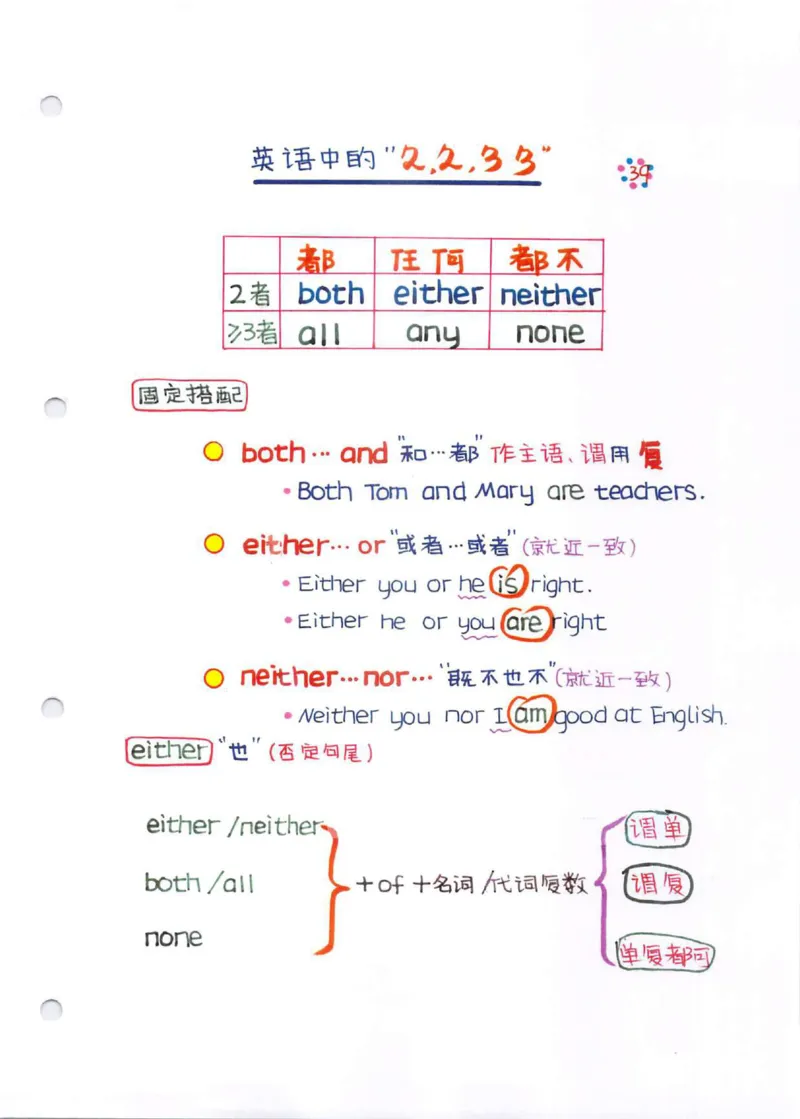 英语中的"2,2,33"
39
都 任何 都不
2者 both either neither
≥3者 all any none
固定搭配
both… and "和…都" 作主语、谓用复
• Both Tom and Mary are teachers.
either… or "或者…或者" (就近一致)
• Either you or he is right.
• Either he or you are right
neither…nor… "既不也不" (就近一致)
• Neither you nor I am good at English.
either "也" (否定句尾)
either /neither 谓单
both /all +of +名词/代词复数 谓复
none 单复都可